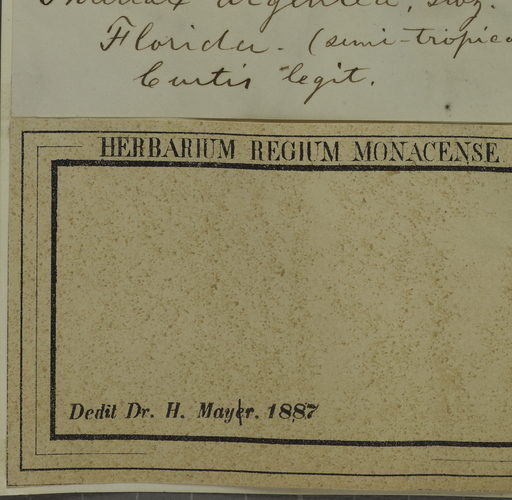 argentea, Swz.
Florida. (semi-tropica
Curtis legit.
HERBARIUM REGIUM MONACENSE
Dedit Dr. H. Mayer. 1887